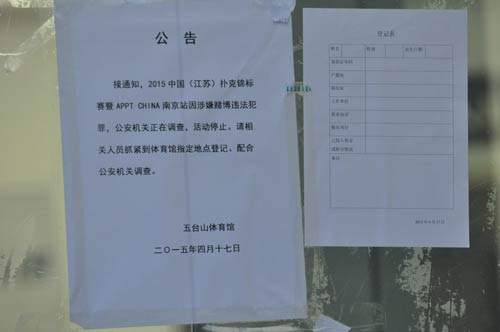 公 告
接通知，2015 中国（江苏）扑克锦标
赛暨 APPT CHINA 南京站因涉嫌赌博违法犯
罪，公安机关正在调查，活动停止。请相
关人员抓紧到体育馆指定地点登记、配合
公安机关调查。
五台山体育馆
二〇一五年四月十七日
登记表
姓名
性别
出生日期
身份证号码
户籍地
现住址
工作单位
联系电话
报名时间
备注